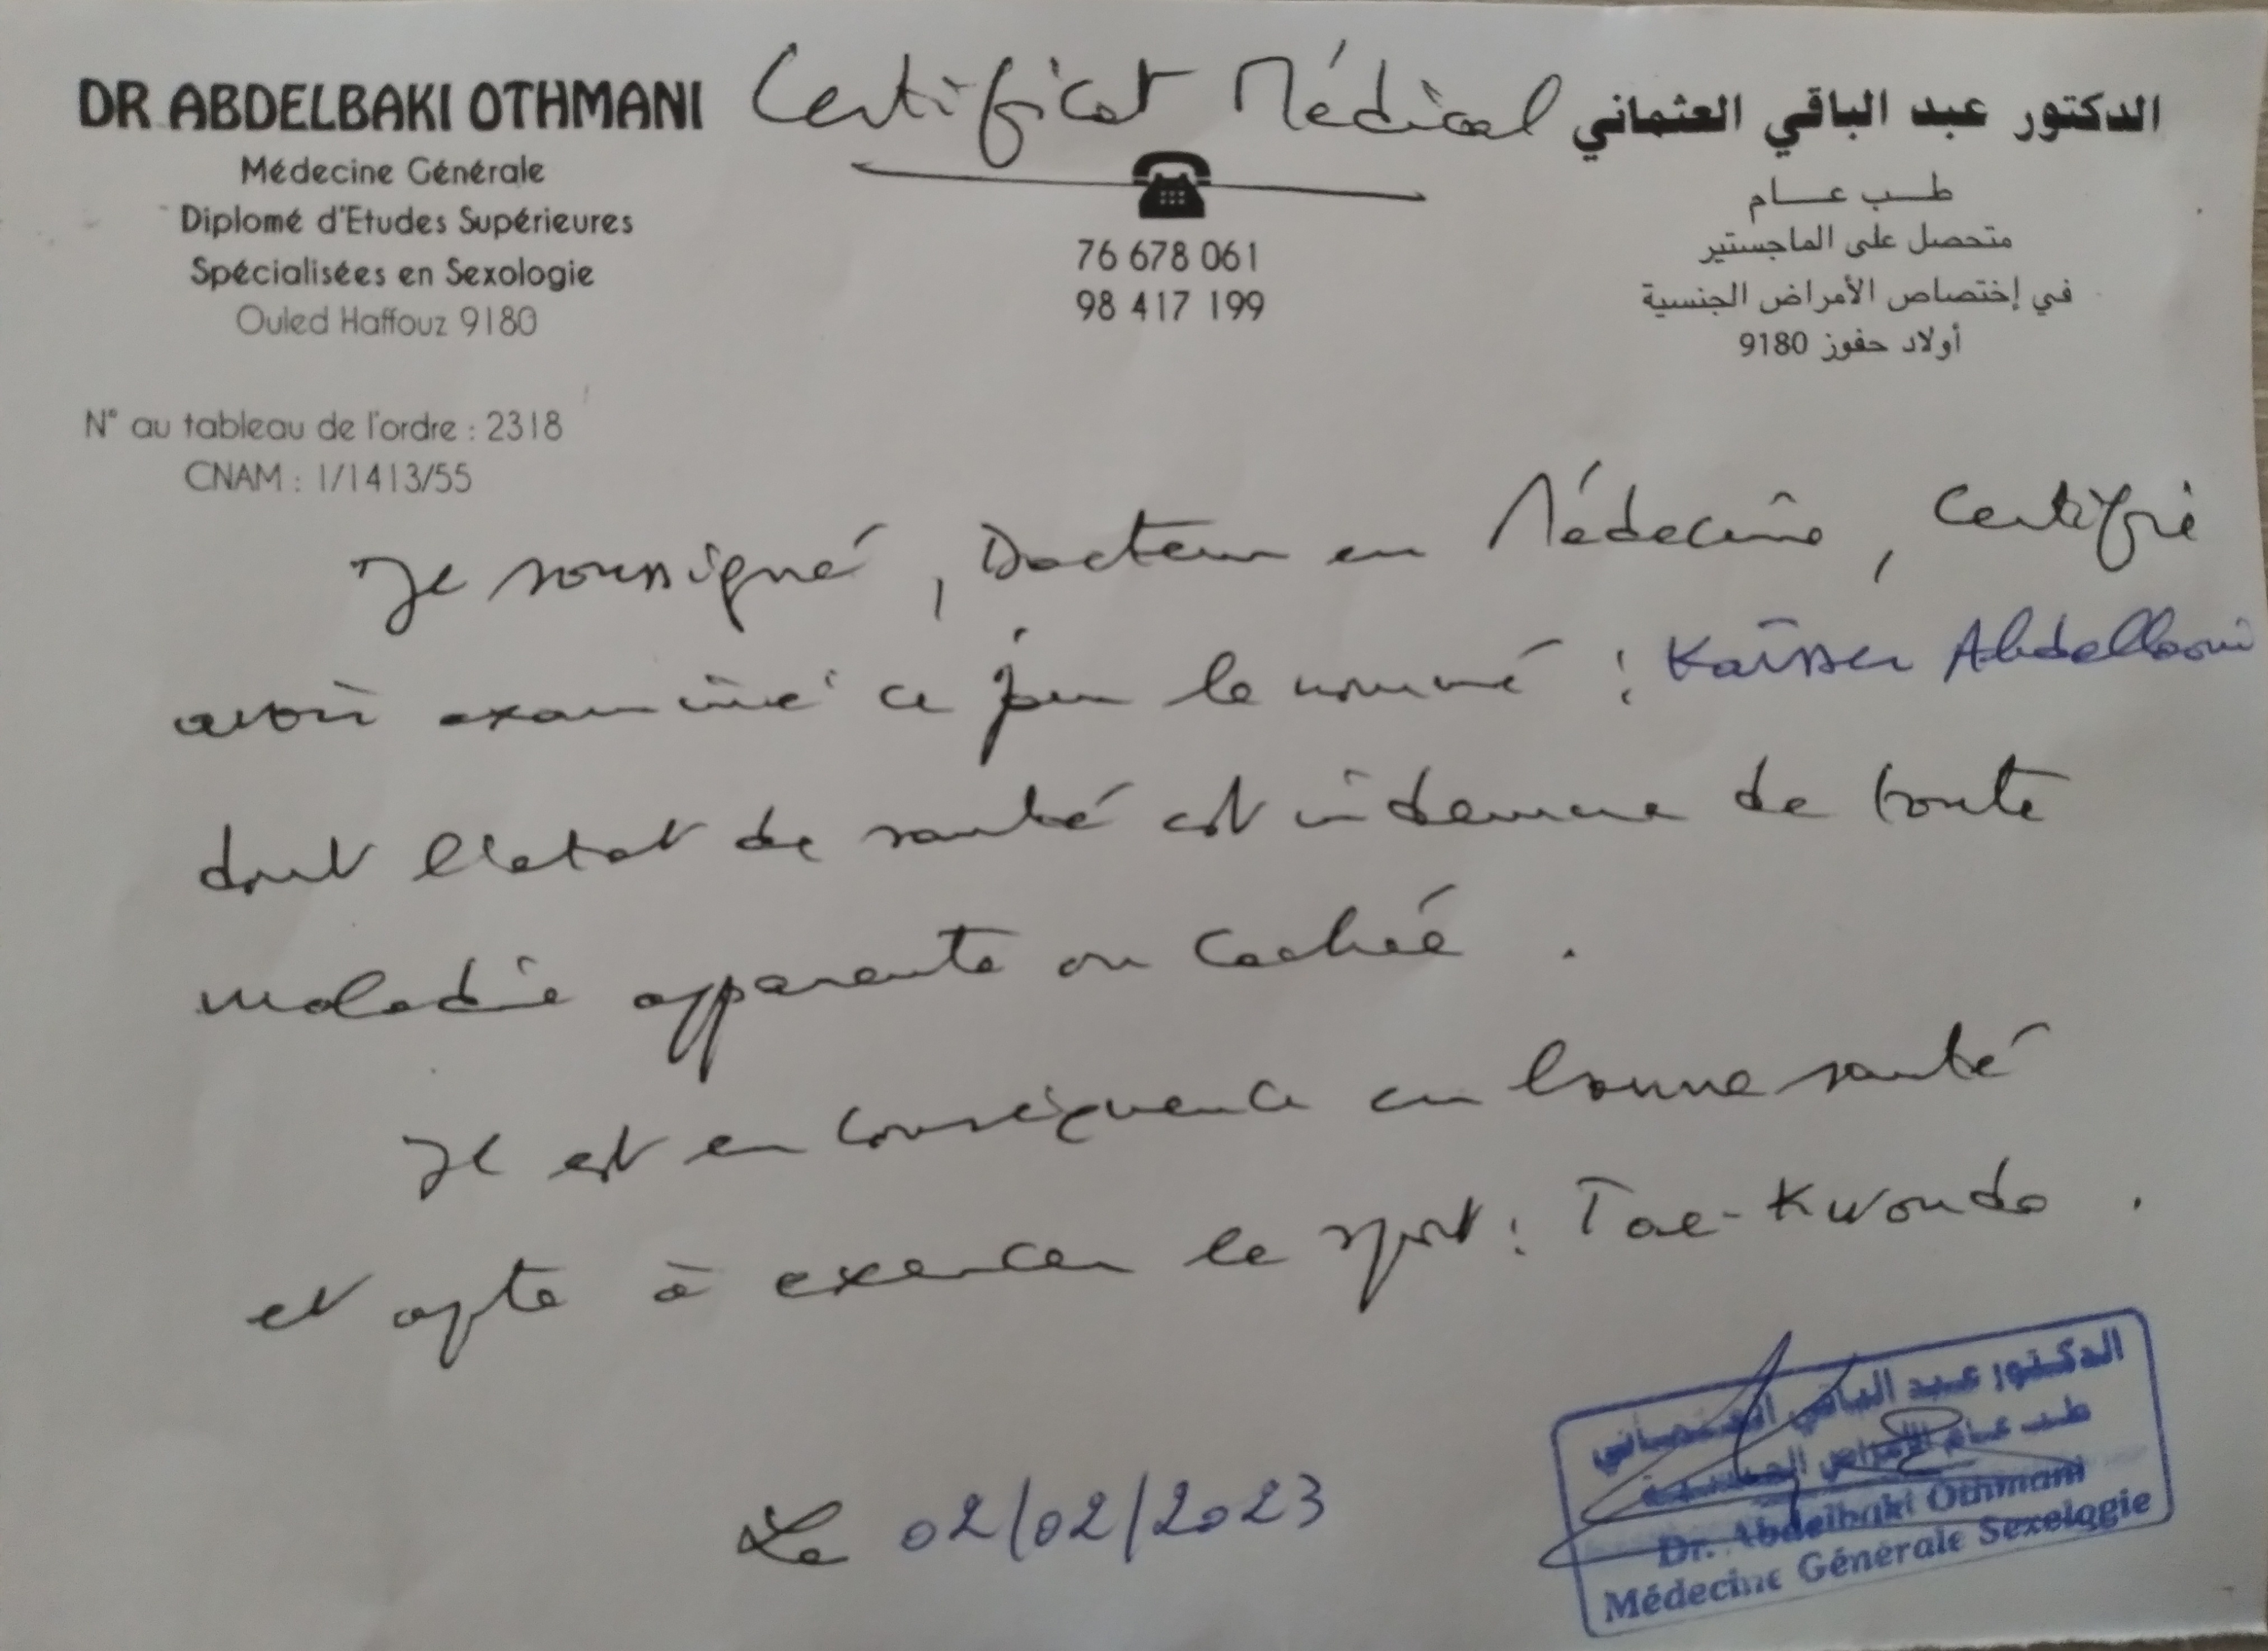 DR ABDELBAKI OTHMANI
Médecine Générale
Diplomé d'Etudes Supérieures
Spécialisées en Sexologie
Ouled Haffouz 9180
N° au tableau de l'ordre : 2318
CNAM : 1/1413/55
Certificat Médical
76 678 061
98 417 199
الدكتور عبد الباقي العثماني
طب عام
متحصل على الماجستير
في إختصاص الأمراض الجنسية
أولاد حفوز 9180
Je soussigné, Docteur en Médecine, Certifie
avoir examiné ce jour le nommé : Kaïsser Abdellaoui
dont l'etat de santé est indemne de toute
maladie apparente ou cachée.
Il est en conséquence en bonne santé
et apte à exercer le sport : Tae-Kwondo.
Le 02/02/2023
الدكتور عبد الباقي العثماني
طب عام الأمراض الجنسية
Dr. Abdelbaki Othmani
Médecine Générale Sexologie